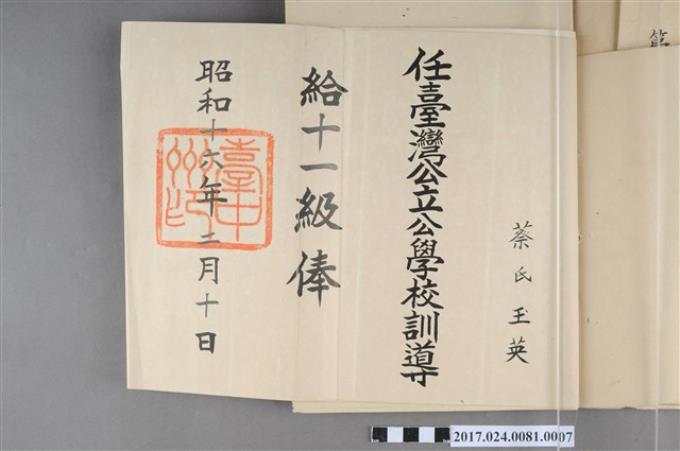 蔡氏玉英
任臺灣公立公學校訓導
給十一級俸
昭和十六年二月十日
臺中州印
2017.024.0081.0007